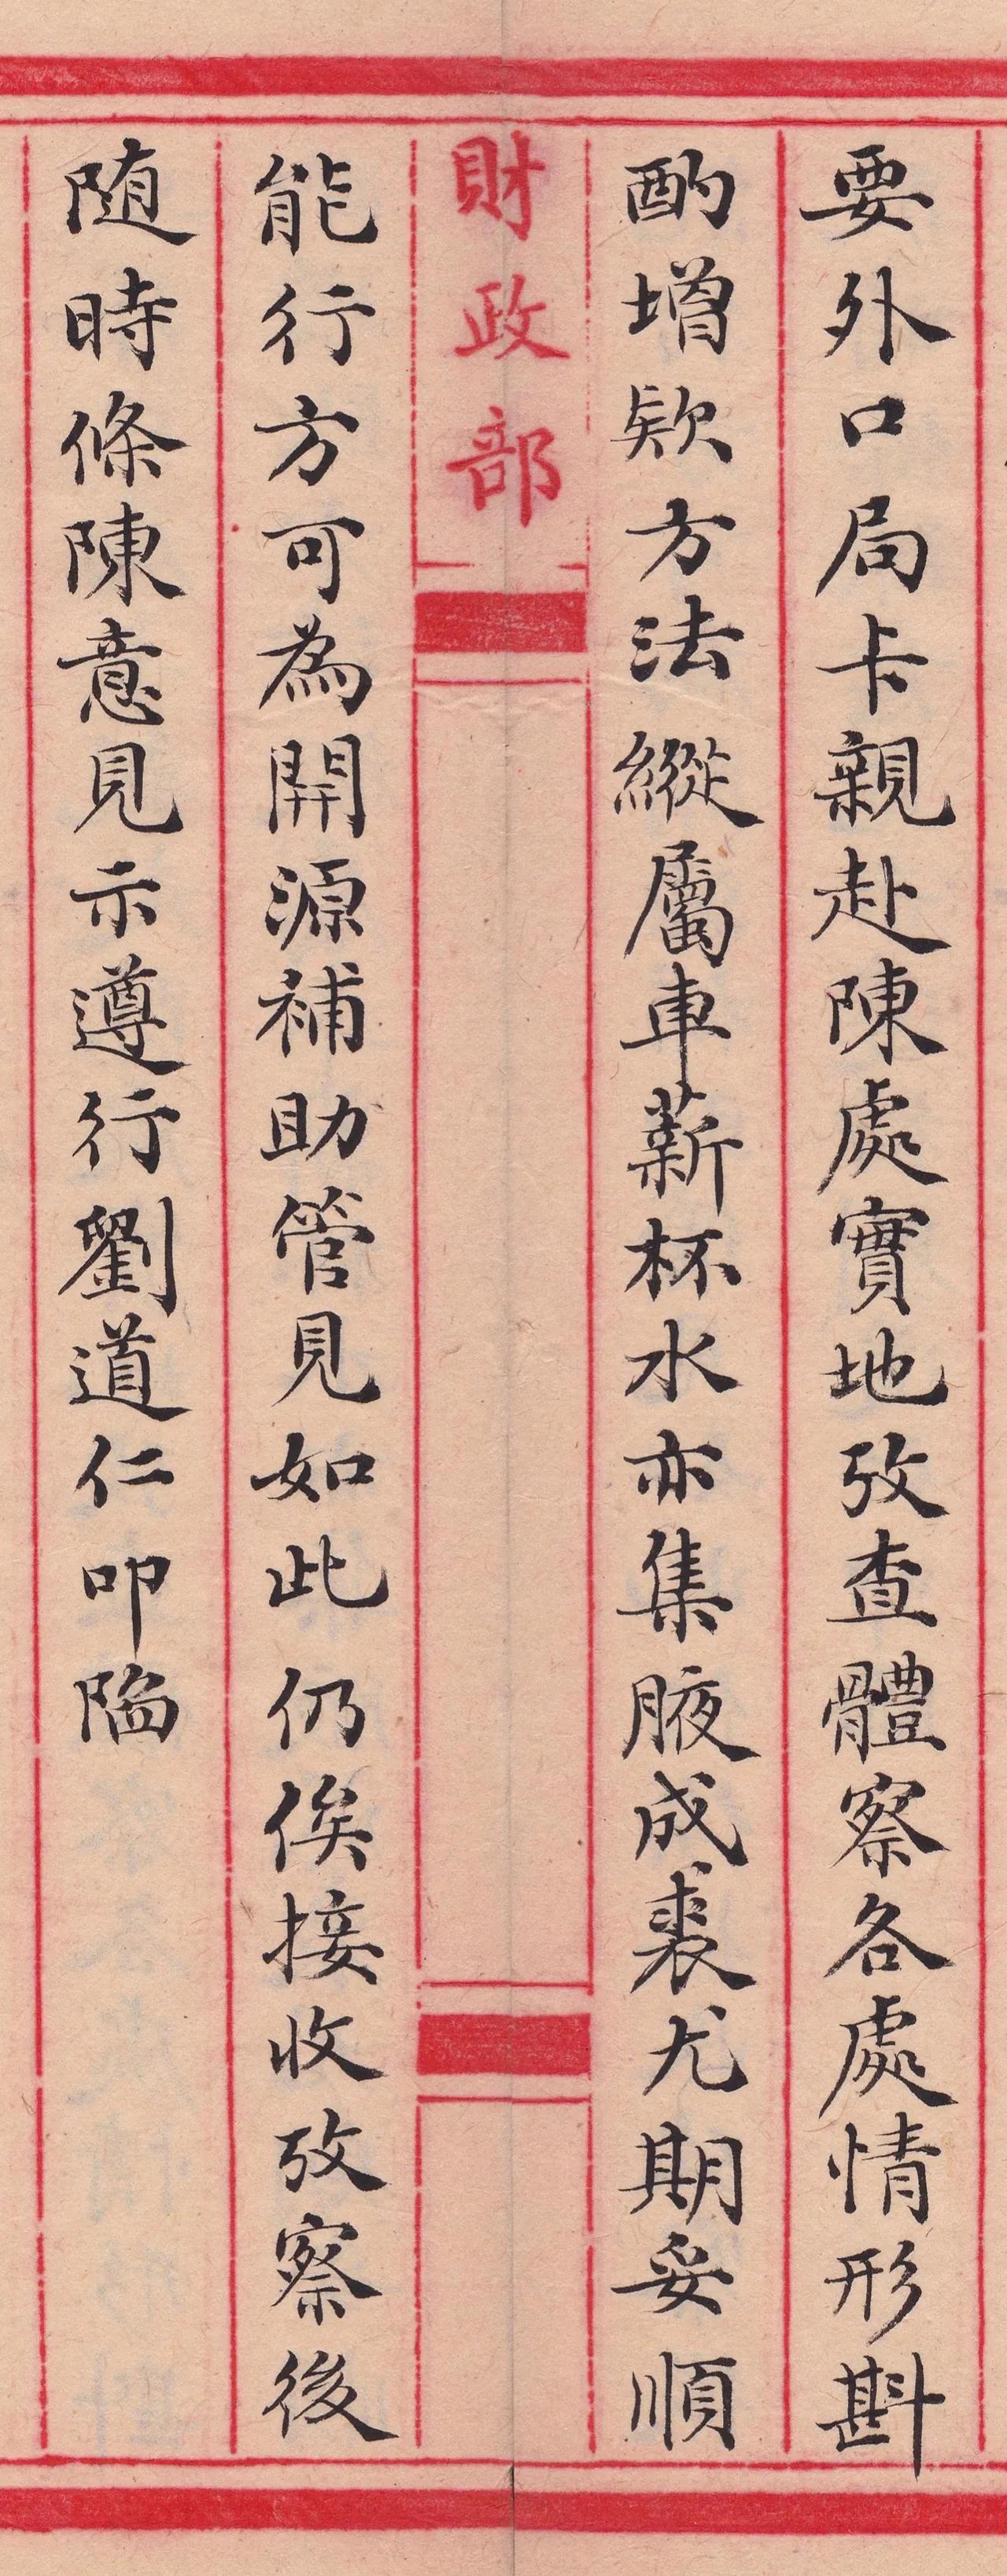 要外口局卡親赴陳處實地攷查體察各處情形斟
酌增欵方法縱屬車薪杯水亦集腋成裘尤期妥順
財政部
能行方可為開源補助管見如此仍俟接收攷察後
随時條陳意見示遵行劉道仁叩陥